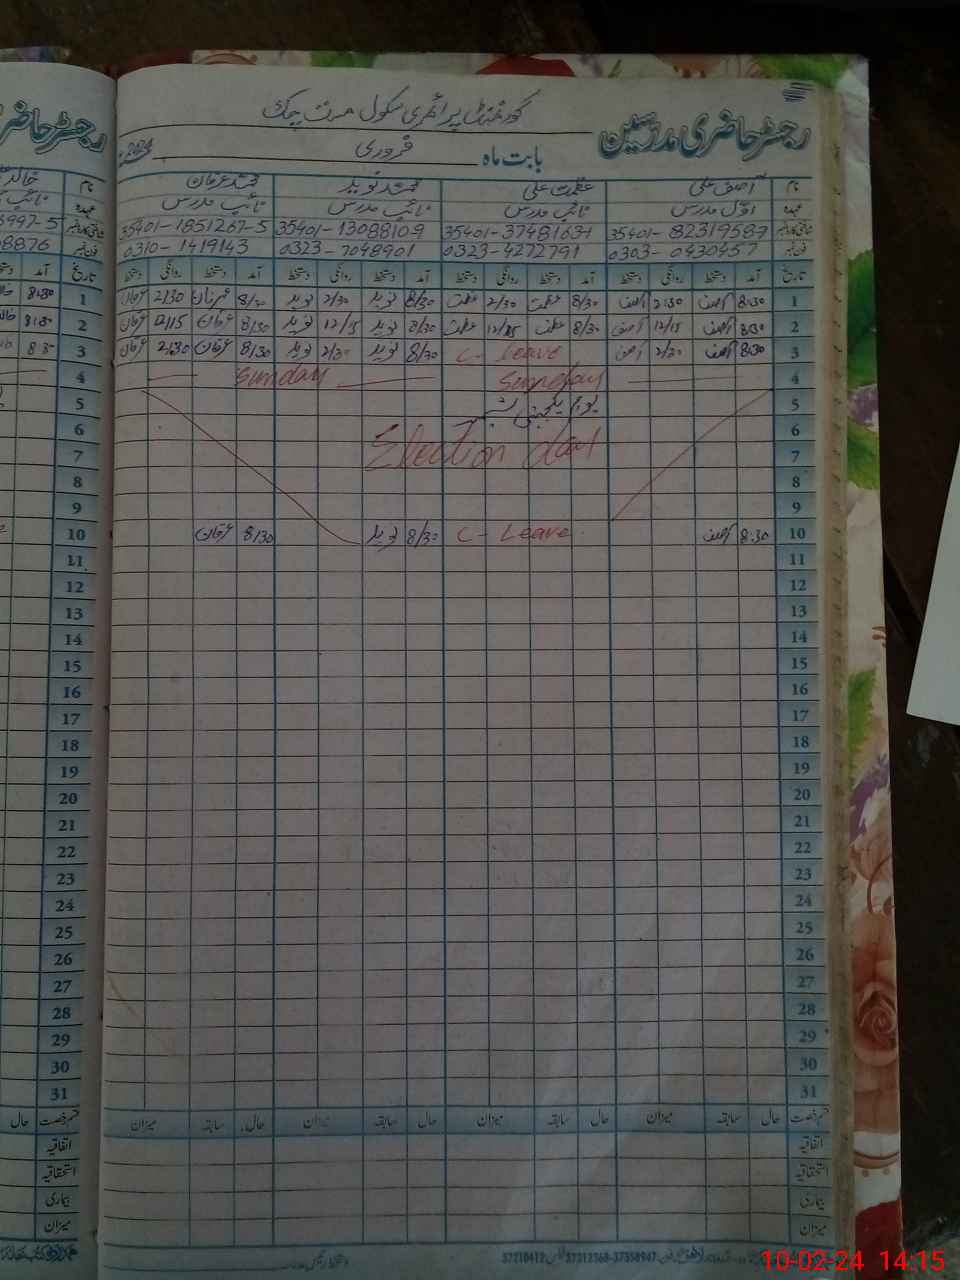 گورنمنٹ پرائمری سکول
رجسٹر حاضری مدرسین
بابت ماہ فروری 2024
نام آصف علی عظمت علی محمد نوید محمد عرفان
عہدہ اول مدرس نائب مدرس نائب مدرس نائب مدرس
شناختی کارڈ نمبر 35401-1851267-5
فون نمبر 0303-0430457 0323-4272791 0323-7048901 0310-1419143
تاریخ آمد دستخط روانگی دستخط آمد دستخط روانگی دستخط آمد دستخط روانگی دستخط آمد دستخط روانگی دستخط
1 8:30 آصف 2:30 آصف 8/30 عظمت 2/30 عظمت 8/30 نوید 2/30 نوید 8/30 عرفان 2/30 عرفان
2 8:30 آصف 12/15 آصف 8/30 عظمت 12/15 عظمت 8/30 نوید 12/15 نوید 8/30 عرفان 12/15 عرفان
3 8:30 آصف 2/30 آصف C-Leave 8/30 نوید 2/30 نوید 8/30 عرفان 2:30 عرفان
4 Sunday Sunday
5 یوم یکجہتی
6
7 Election day
8
9
10 8:30 آصف C-Leave 8/30 نوید 8/30 عرفان
11
12
13
14
15
16
17
18
19
20
21
22
23
24
25
26
27
28
29
30
31
قسم رخصت حال سابقہ میزان حال سابقہ میزان حال سابقہ میزان حال سابقہ میزان
اتفاقیہ
استحقاقیہ
بیماری
میزان
10-02-24 14:15